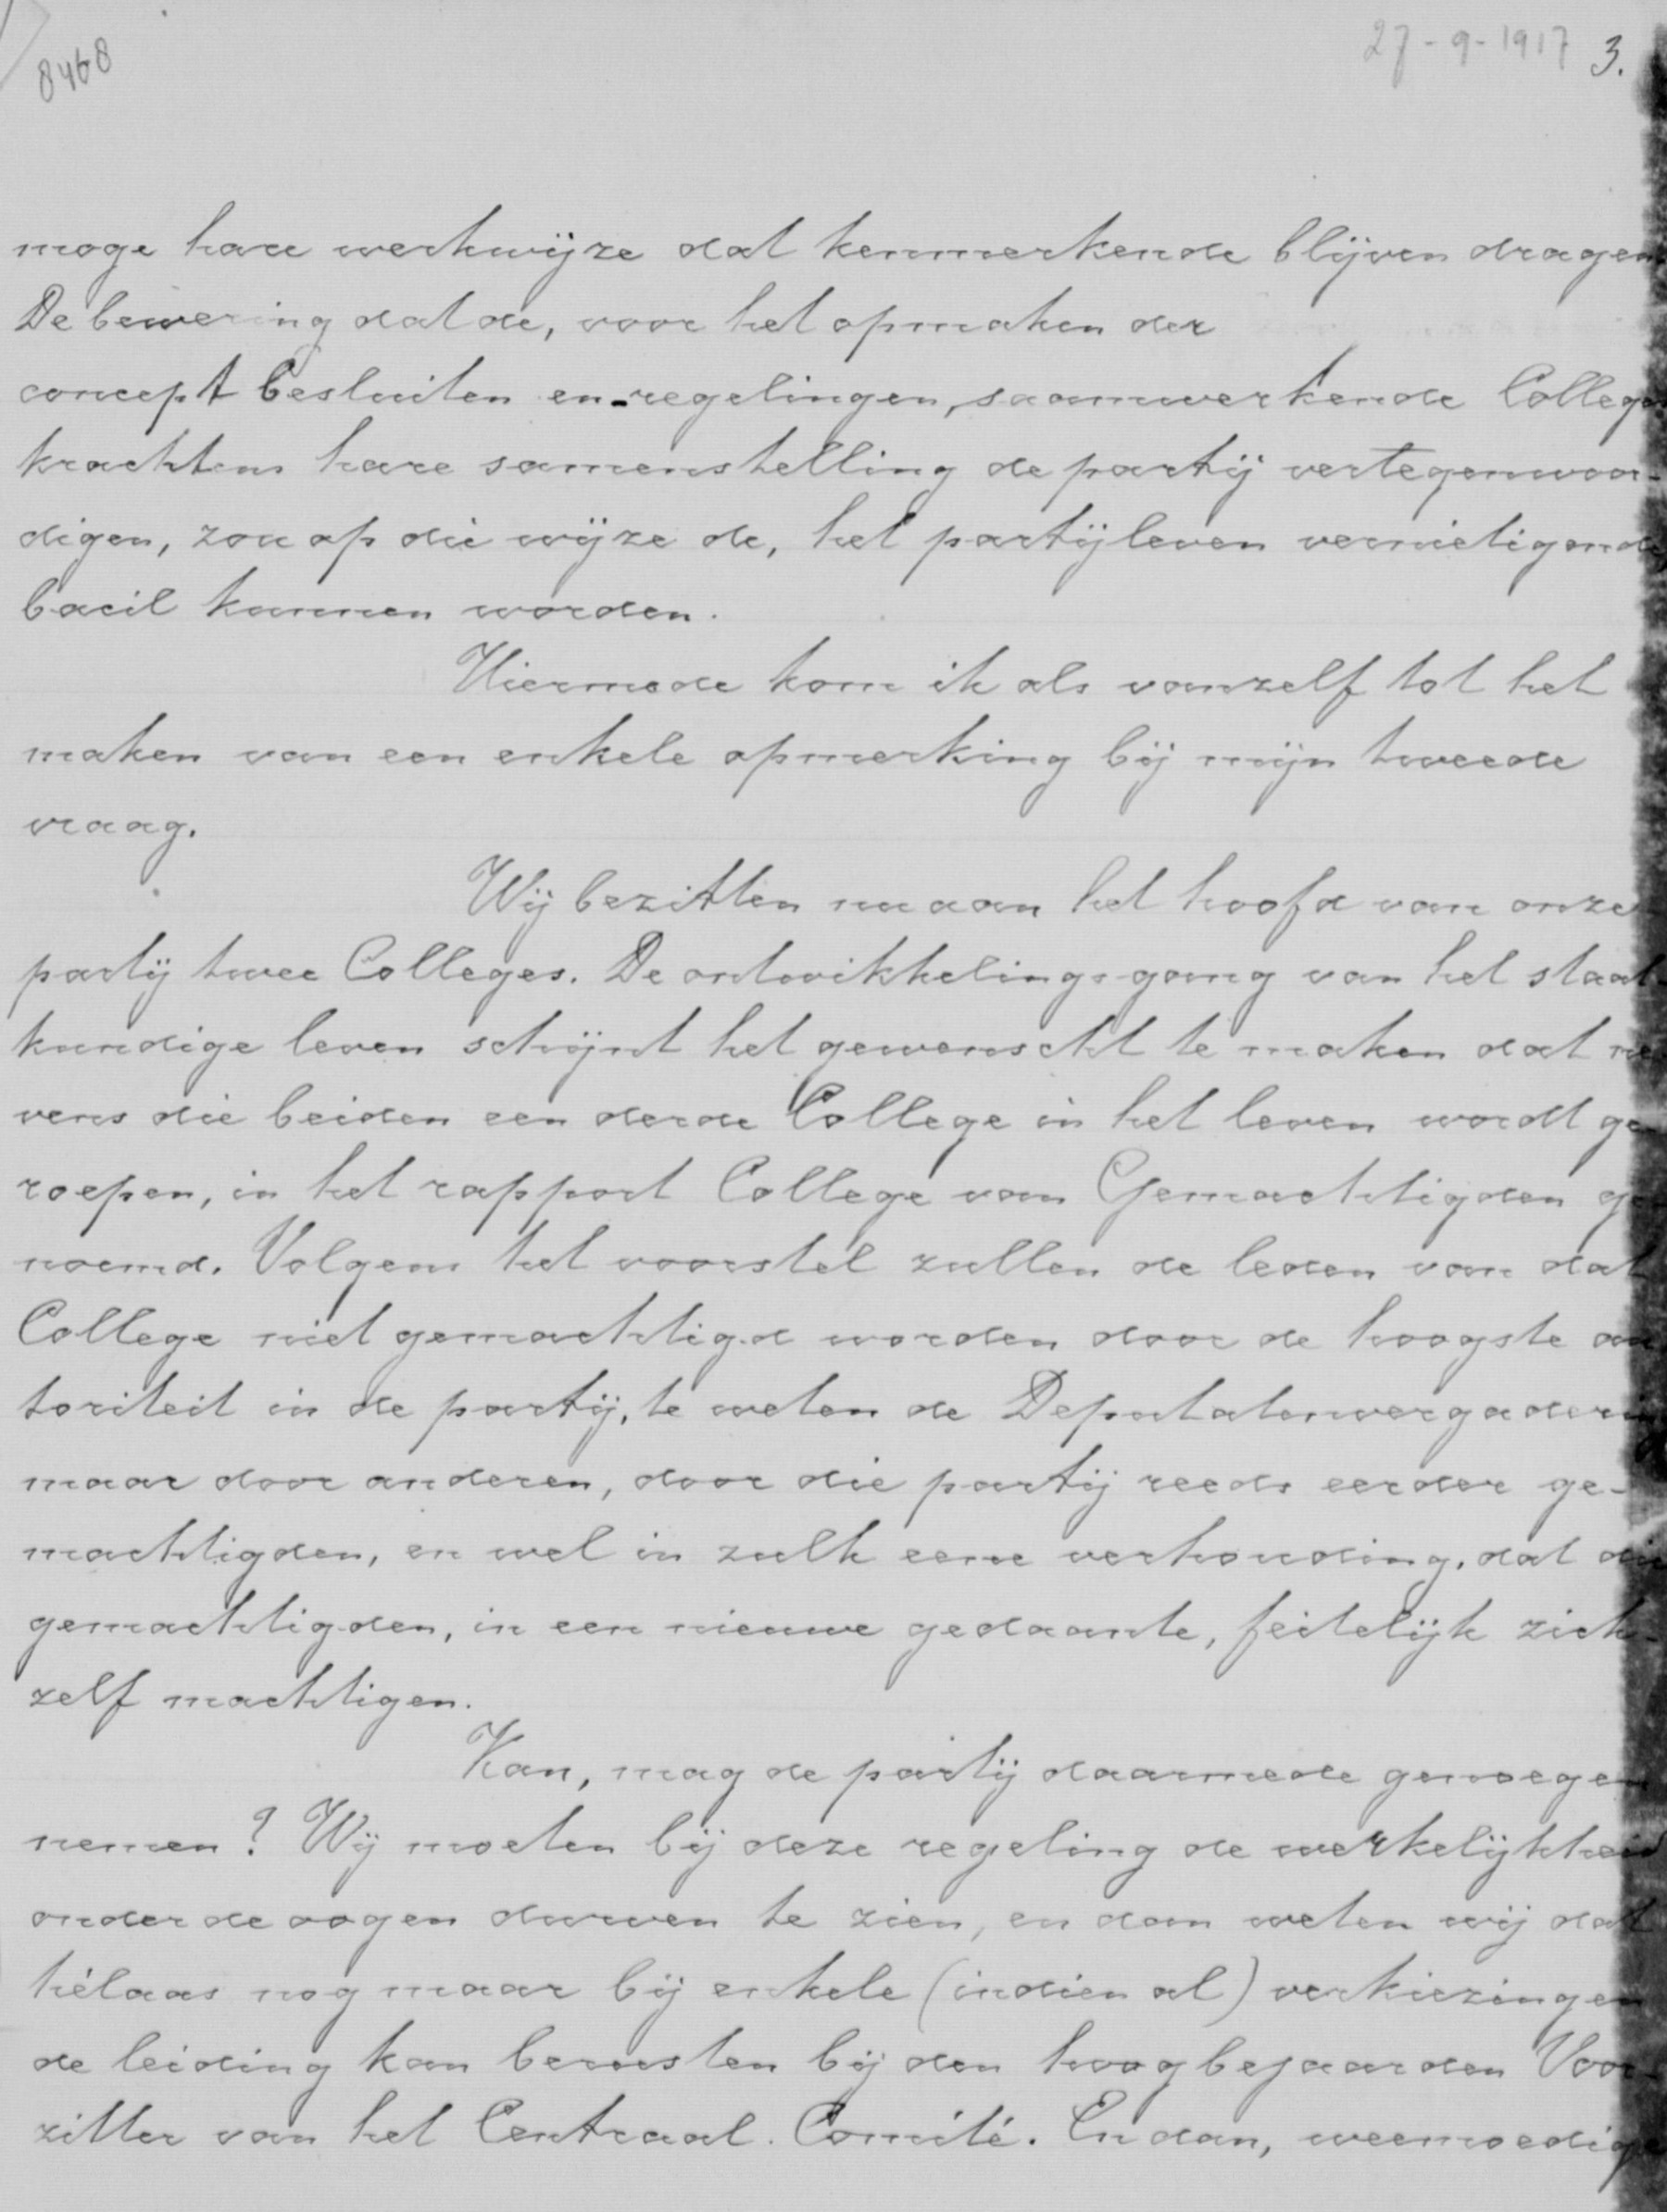 8468
27-9-1917 3.
moge hare werkwijze dat kenmerkende blijven dragen.
De bewering dat de, voor het opmaken der
concept besluiten en-regelingen, saamwerkende Colleges
krachtens hare samenstelling de partij vertegenwoor-
digen, zou op die wijze de, het partijleven vernietigende,
bacil kunnen worden.
Hiermede kom ik als vanzelf tot het
maken van een enkele opmerking bij mijn tweede
vraag.
Wij bezitten nu aan het hoofd van onze
partij twee Colleges. De ontwikkelingsgang van het staat-
kundige leven schijnt het gewenscht te maken dat ne-
vens die beiden een derde College in het leven wordt ge-
roepen, in het rapport College van Gemachtigden ge-
noemd. Volgens het voorstel zullen de leden van dat
College niet gemachtigd worden door de hoogste au-
toriteit in de partij, te weten de Deputatenvergadering
maar door anderen, door die partij reeds eerder ge-
machtigden, en wel in zulk eene verhouding, dat die
gemachtigden, in een nieuwe gedaante, feitelijk zich-
zelf machtigen.
Kan, mag de partij daarmede genoegen
nemen? Wij moeten bij deze regeling de werkelijkheid
onder de oogen durven te zien, en dan weten wij dat
hélaas nog maar bij enkele (indien al) verkiezingen
de leiding kan berusten bij den hoogbejaarden Voor-
zitter van het Centraal Comité. En dan, weemoedige